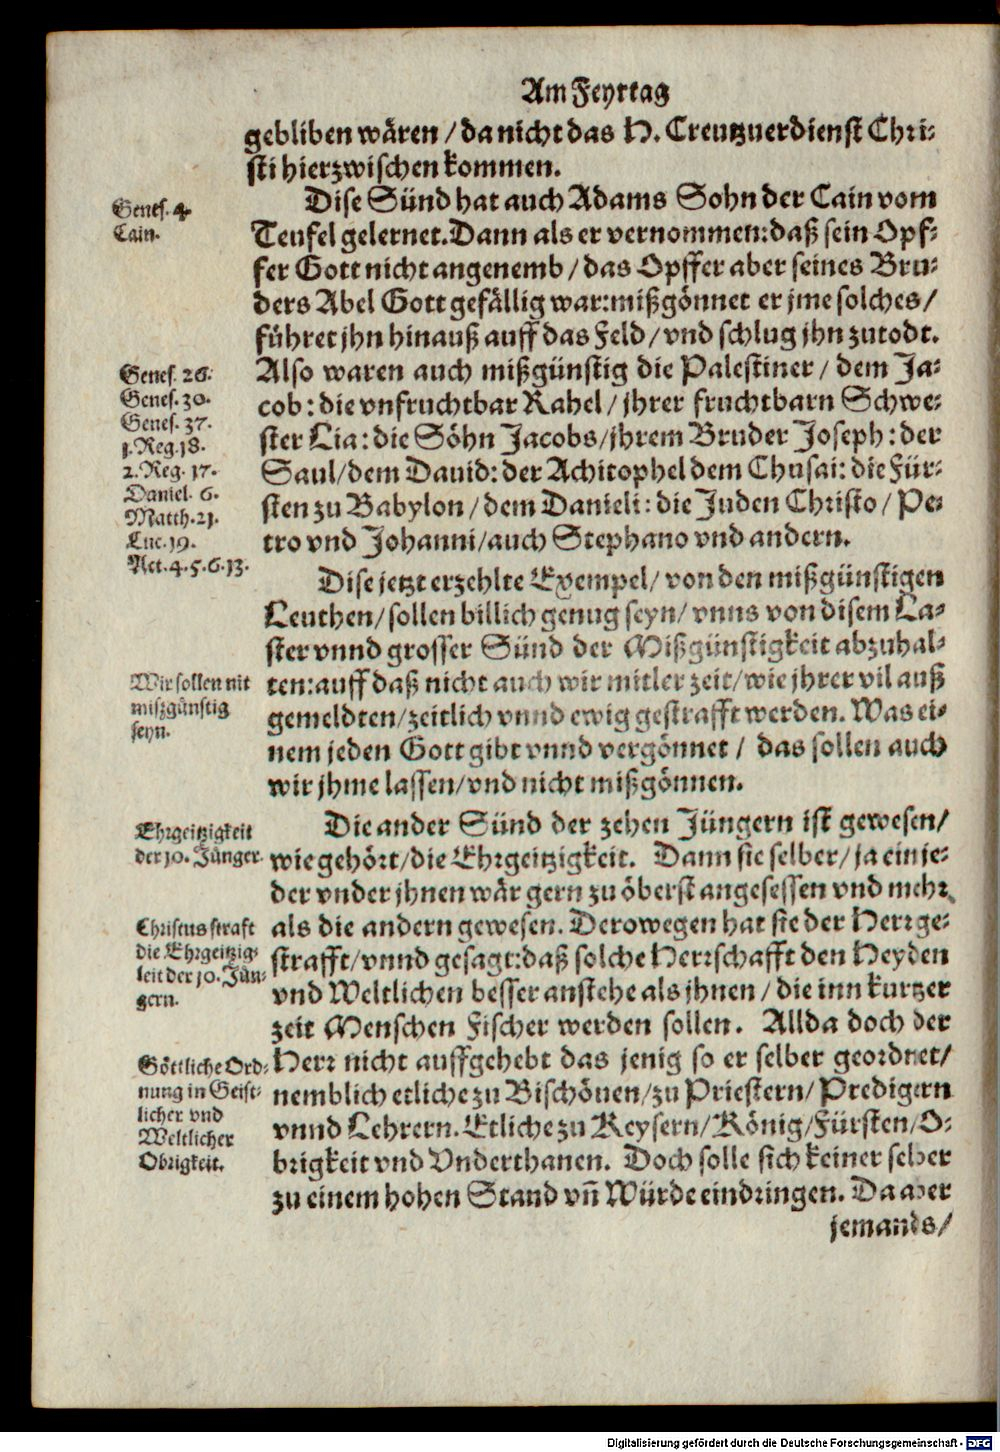 Am Feyrtag
gebliben wären / da nicht das H. Creutzuerdienst Chri-
sti hierzwischen kommen.
Dise Sünd hat auch Adams Sohn der Cain vom
Teufel gelernet. Dann als er vernommen: daß sein Opf-
fer Gott nicht angenemb / das Opffer aber seines Bru-
ders Abel Gott gefällig war: mißgönnet er jme solches /
führet jhn hinauß auff das Feld / vnd schlug jhn zutodt.
Also waren auch mißgünstig die Palestiner / dem Ja-
cob : die vnfruchtbar Rahel / jhrer fruchtbarn Schwe-
ster Lia : die Söhn Jacobs / jhrem Bruder Joseph : der
Saul / dem Dauid : der Achitophel dem Chusai : die Für-
sten zu Babylon / dem Danieli : die Juden Christo / Pe-
tro vnd Johanni / auch Stephano vnd andern.
Genes. 4.
Cain.
Genes. 26.
Genes. 30.
Genes. 37.
1. Reg. 18.
2. Reg. 17.
Daniel. 6.
Matth. 21.
Luc. 19.
Act. 4. 5. 6. 13.
Dise jetzt erzehlte Exempel / von den mißgünstigen
Leuthen / sollen billich genug seyn / vnns von disem La-
ster vnnd grosser Sünd der Mißgünstigkeit abzuhal-
ten: auff daß nicht auch wir mitler zeit / wie jhrer vil auß
gemeldten / zeitlich vnnd ewig gestrafft werden. Was ei-
nem jeden Gott gibt vnnd vergönnet / das sollen auch
wir jhme lassen / vnd nicht mißgönnen.
Wir sollen nit
mißgünstig
seyn.
Die ander Sünd der zehen Jüngern ist gewesen /
wie gehört / die Ehrgeitzigkeit. Dann sie selber / ja ein je-
der vnder jhnen wär gern zu öberst angesessen vnd mehr
als die andern gewesen. Derowegen hat sie der Herr ge-
strafft / vnnd gesagt: daß solche Herrschafft den Heyden
vnd Weltlichen besser anstehe als jhnen / die inn kurtzer
zeit Menschen Fischer werden sollen. Allda doch der
Herr nicht auffgehebt das jenig so er selber geordnet /
nemblich etliche zu Bischöuen / zu Priestern / Predigern
vnnd Lehrern. Etliche zu Keysern / König / Fürsten / O-
brigkeit vnd Vnderthanen. Doch solle sich keiner selber
zu einem hohen Stand vñ Würde eindringen. Da aber
jemands /
Ehrgeitzigkeit
der 10. Jünger.
Christus straft
die Ehrgeitzig-
keit der 10. Jün-
gern.
Göttliche Ord-
nung in Geist-
licher vnd
Weltlicher
Obrigkeit.
Digitalisierung gefördert durch die Deutsche Forschungsgemeinschaft - DFG